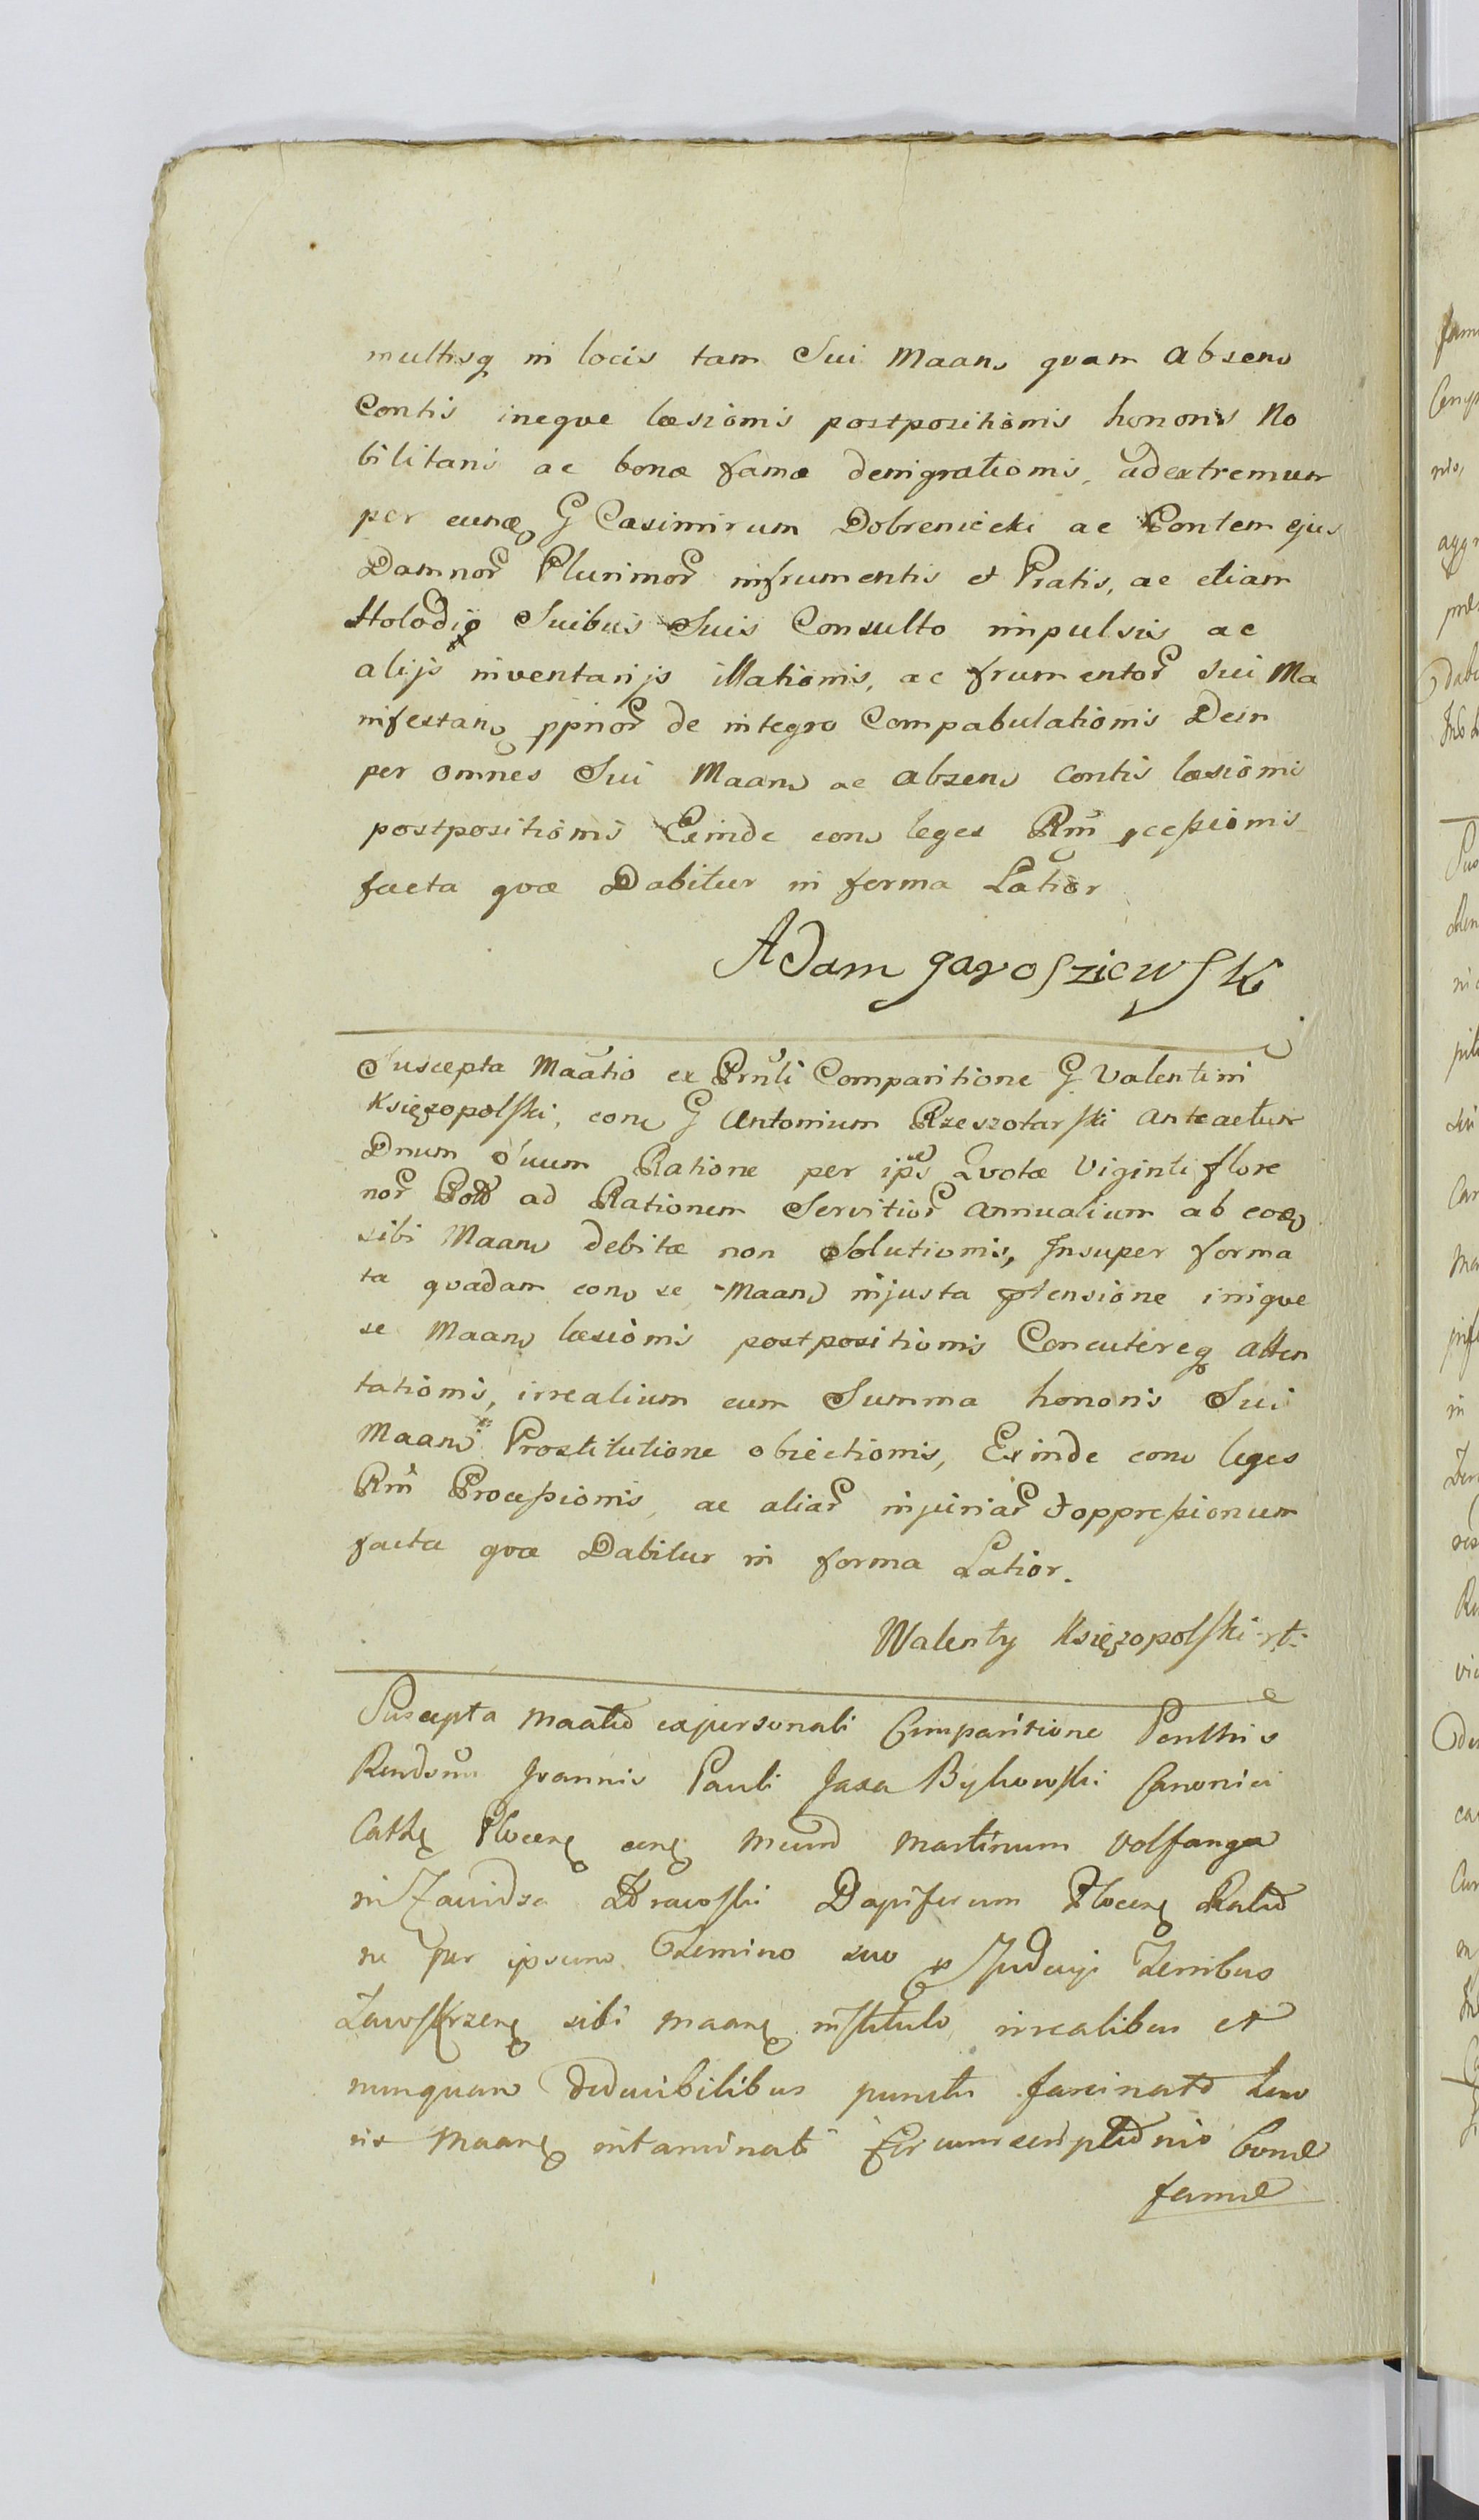 multisq in locis tam Sui Maan quam absen
Contis ineque læsionis postpositionis honoris No
bilitaris ac bonæ famæ denigrationis, adextremum
per eund G Casimirum Dobrenicki ac Contem ejus
Damnor Plurimor infrumentis et Pratis, ac etiam
Holodio Suibus Suis Consulto impulsis ac
alijs inventarijs illationis, ac frumentor Sui Ma
nifestan pprior de integro Compabulationis Dein
per omnes Sui Maan ac absen contis læsionis
postpositionis Exinde con leges Rni pcessionis
facta quæ Dabitur in forma Latior
Adam garosziewski
Suscepta Maãtio ex Prnli Comparitione G Valentini
Księzopolski, con G Antonium Rzeszotarski anteactum
Dnum suum Ratione per ips Quotæ Viginti flore
nor Pol ad Rationem Servitior annualium ab eod
sibi Maan debitæ non Solutionis, Insuper forma
ta quadam con se Maan injusta ptensione inique
se Maan læsionis postpositionis Concutereq atten
tationis, irrealium cum Summa honoris Sui
Maan Prostitutione obiectionis, Exinde con leges
Rni Processionis, ac aliar injuriar et oppressionum
facta quæ Dabitur in forma Latior.
Walenty Księzopolski
Suscepta Maatio expersonali Comparitione Perillris
Rendsmi Joannis Pauli Jaxa Bykowski Canonici
Cath Plocen con Mcum Martinum Volfanga
in Zawidza Drawoski Dapiferum Plocen Ratio
ne per ipsum Termino suo Judicji Terribus
Zawskrzen sibi Maan instituto, irrealibus et
nunquam deducibilibus punctis farcinato
Maan intaminati Circumscriptionis bonæ
famæ